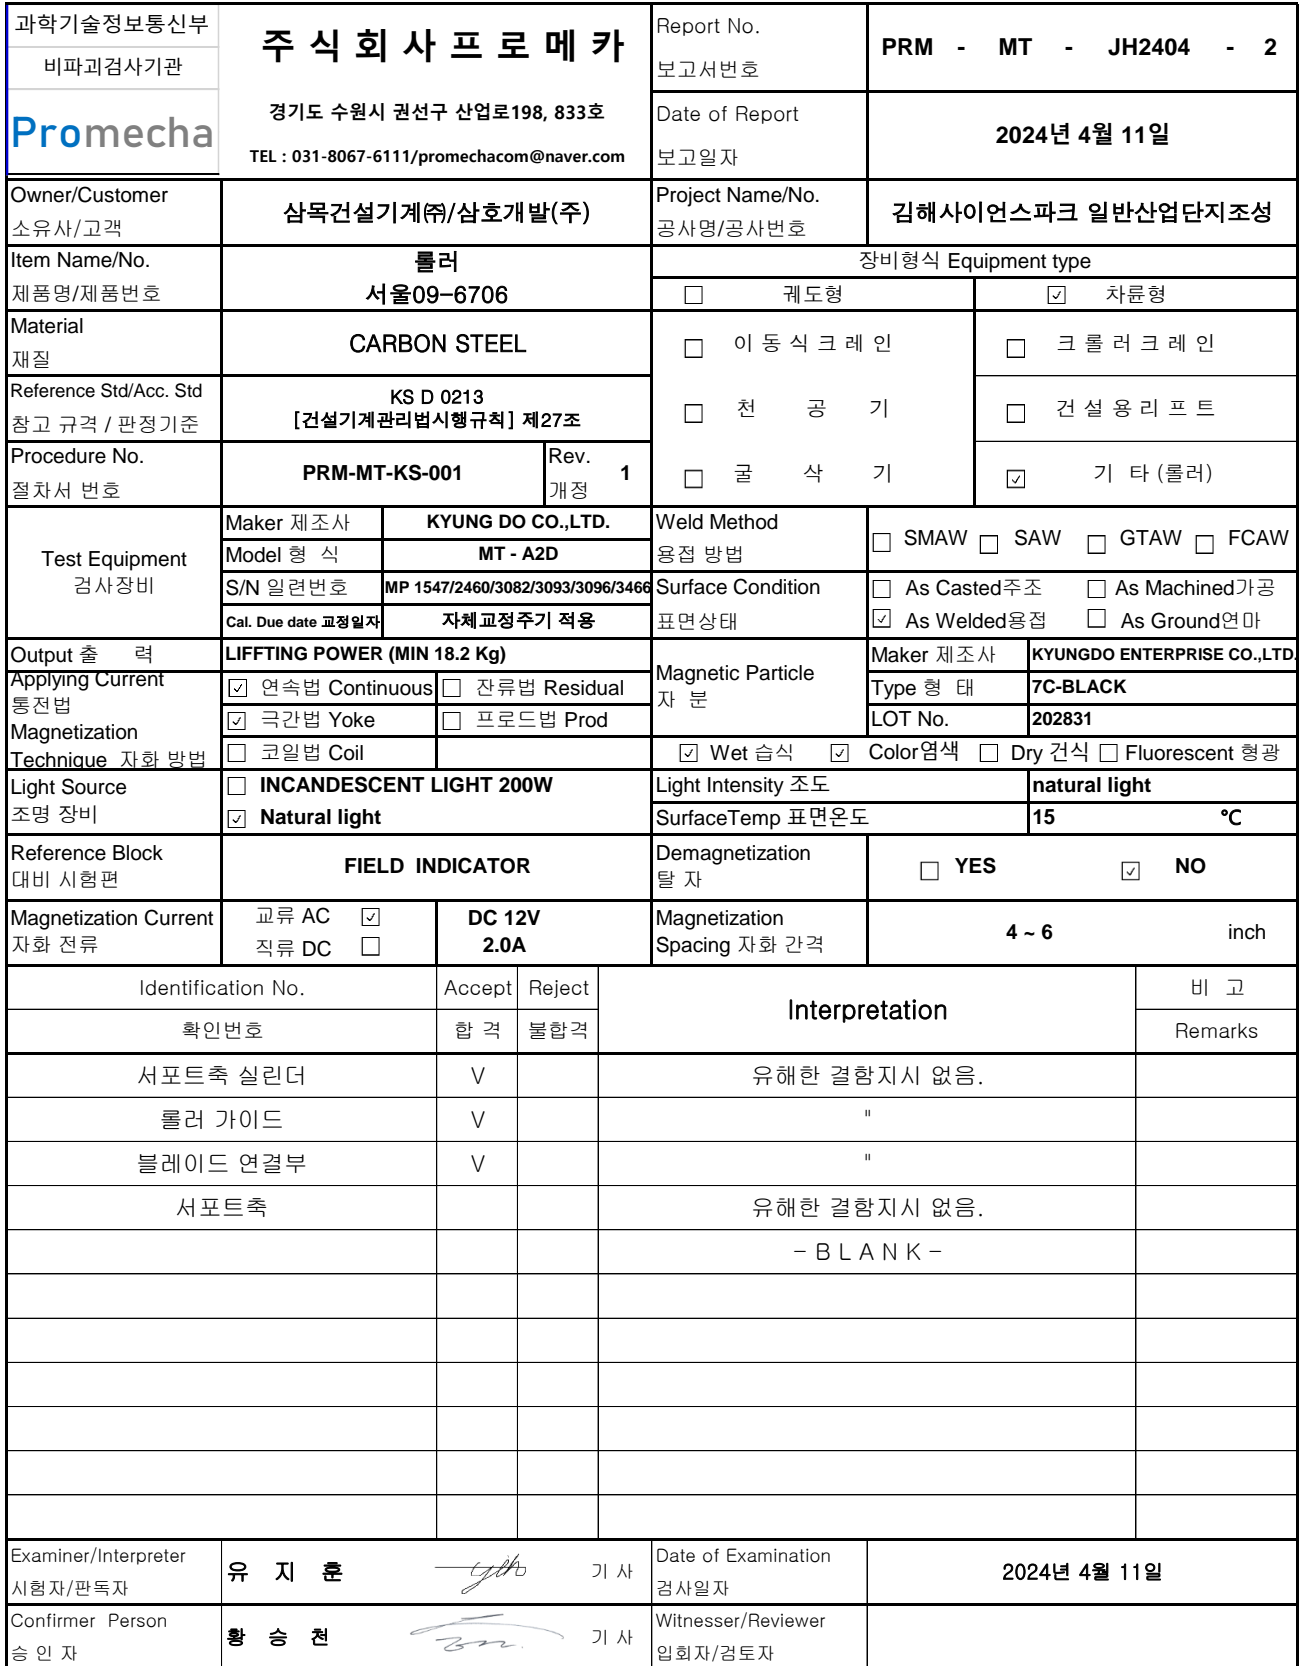 과학기술정보통신부
비파괴검사기관
Promecha
주 식 회 사 프 로 메 카
경기도 수원시 권선구 산업로198, 833호
TEL : 031-8067-6111/promechacom@naver.com
Report No.
보고서번호
PRM - MT - JH2404 - 2
Date of Report
보고일자
2024년 4월 11일
Owner/Customer
소유사/고객
삼목건설기계㈜/삼호개발(주)
Project Name/No.
공사명/공사번호
김해사이언스파크 일반산업단지조성
Item Name/No.
제품명/제품번호
롤러
서울09-6706
장비형식 Equipment type
☐ 궤도형 ☑ 차륜형
Material
재질
CARBON STEEL
☐ 이 동 식 크 레 인 ☐ 크 롤 러 크 레 인
Reference Std/Acc. Std
참고 규격 / 판정기준
KS D 0213
[건설기계관리법시행규칙] 제27조
☐ 천 공 기 ☐ 건 설 용 리 프 트
Procedure No.
절차서 번호
PRM-MT-KS-001
Rev.
개정
1
☐ 굴 삭 기 ☑ 기 타 (롤러)
Test Equipment
검사장비
Maker 제조사 KYUNG DO CO.,LTD.
Model 형 식 MT - A2D
S/N 일련번호 MP 1547/2460/3082/3093/3096/3466
Cal. Due date 교정일자 자체교정주기 적용
Weld Method
용접 방법
☐ SMAW ☐ SAW ☐ GTAW ☐ FCAW
Surface Condition
표면상태
☐ As Casted주조 ☐ As Machined가공
☑ As Welded용접 ☐ As Ground연마
Output 출 력 LIFFTING POWER (MIN 18.2 Kg)
Applying Current
통전법
Magnetization
Technique 자화 방법
☑ 연속법 Continuous ☐ 잔류법 Residual
☑ 극간법 Yoke ☐ 프로드법 Prod
☐ 코일법 Coil
Magnetic Particle
자 분
Maker 제조사 KYUNGDO ENTERPRISE CO.,LTD.
Type 형 태 7C-BLACK
LOT No. 202831
☑ Wet 습식 ☑ Color염색 ☐ Dry 건식 ☐ Fluorescent 형광
Light Source
조명 장비
☐ INCANDESCENT LIGHT 200W
☑ Natural light
Light Intensity 조도 natural light
SurfaceTemp 표면온도 15 ℃
Reference Block
대비 시험편
FIELD INDICATOR
Demagnetization
탈 자
☐ YES ☑ NO
Magnetization Current
자화 전류
교류 AC ☑
직류 DC ☐
DC 12V
2.0A
Magnetization
Spacing 자화 간격
4 ~ 6 inch
Identification No.
확인번호
Accept
합 격
Reject
불합격
Interpretation
비 고
Remarks
서포트축 실린더 V 유해한 결함지시 없음.
롤러 가이드 V "
블레이드 연결부 V "
서포트축 유해한 결함지시 없음.
- B L A N K -
Examiner/Interpreter
시험자/판독자
유 지 훈 기 사
Date of Examination
검사일자
2024년 4월 11일
Confirmer Person
승 인 자
황 승 천 기 사
Witnesser/Reviewer
입회자/검토자